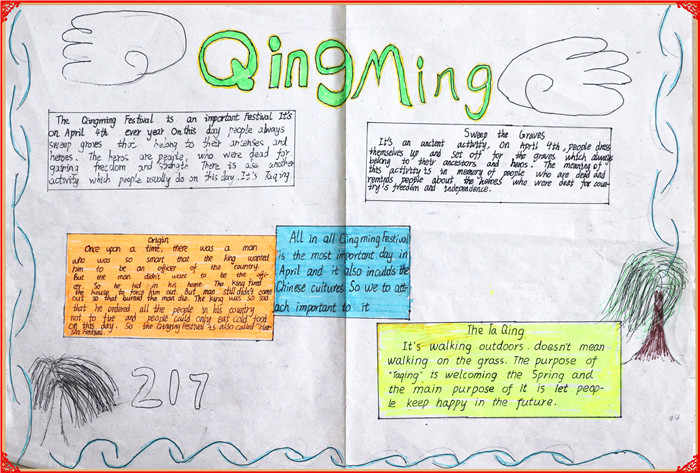 QingMing
The Qingming Festival is an important Festival It's
on April 4th ever year On this day people always
sweep graves that belong to their ancenses and
heroes. The heros are people, who were dead for
gaining freedom and There is also another
activity which people usually do on this day. It's Taqing
Sweep the Graves
It's an ancient activity. On April 4th, people dress
themselves up and set off for the graves which always
belong to their ancestors and heros. The meaning of
this activity is in memory of people who are dead and
reminds people about the heroes who were deat for coun-
try's freedom and independence.
Origin
Once upon a time, there was a man
who was so smart that the king wanted
him to be an officer of the country.
But the man didn't want to be the offi-
cer. So he hid in his home. The king fired
the house to force him out. But man still didn't come
out so that burned the man die. The king was so sad
that he ordered all the people in his country
not to fire and people could only eat cold food
on this day. So the Qingming Festival is also called
Festival.
All in all Qingming Festival
is the most important day in
April and it also includs the
Chinese cultures So we to att-
ach important to it
The Ta Qing
It's walking outdoors. doesn't mean
walking on the grass. The purpose of
"Taqing" is welcoming the Spring and
the main purpose of it is let peop-
le keep happy in the future.
217